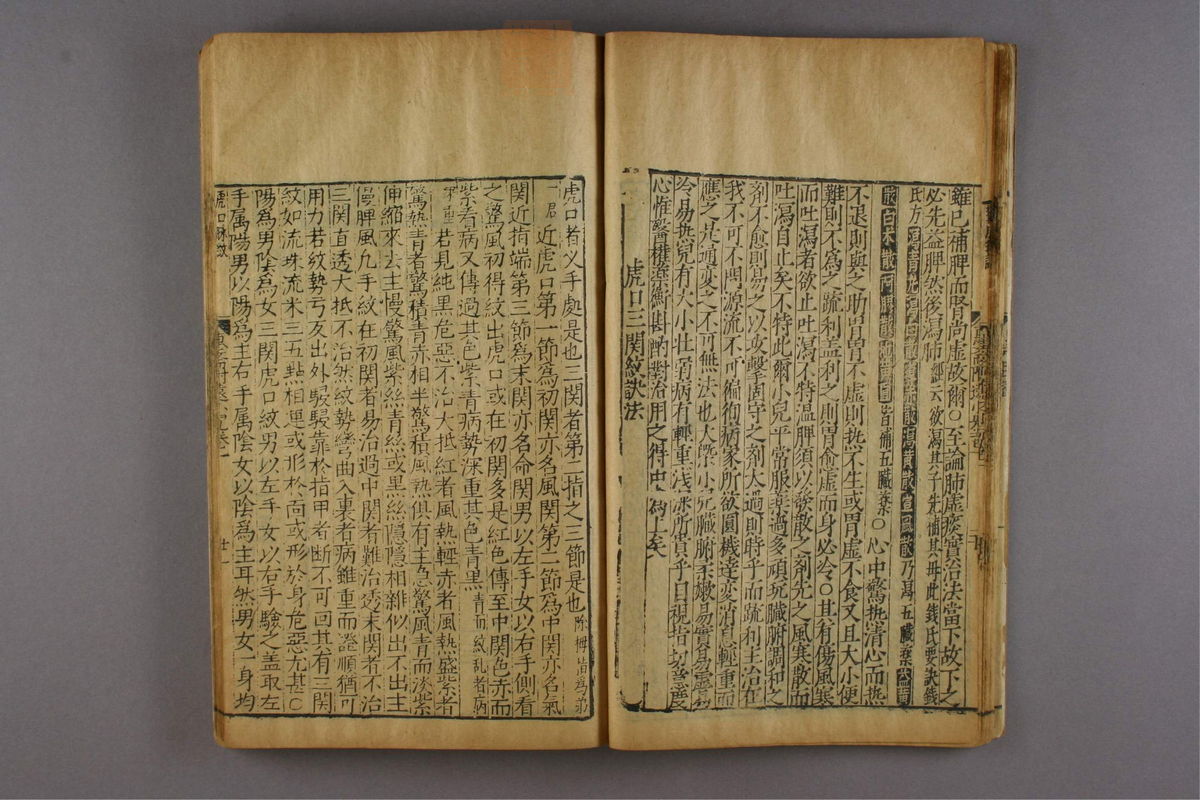 雖已補脾而腎尚虛故爾○至論肺虛痰實治法當下故下之
必先益脾然後瀉肺經云欲瀉其子先補其母此錢氏要訣錢
氏方瀉青丸瀉白散瀉黃散導赤散乃瀉五臟藥益黃
散白朮散阿膠散地黃圓皆補五臟藥○心中驚熱清心而熱
不退則與之助胃胃不虛則熱不生或胃虛不食又且大小便
難則不為之疏利蓋利之則胃愈虛而身必冷○其有傷風寒
而吐瀉者欲止吐瀉不特溫脾須以發散之劑先之風寒散而
吐瀉自止矣不特此爾小兒平常服藥過多頑玩臟腑調和之
劑不愈則易之以攻擊固守之劑太過則時乎而疏利主治在
我不可不問源流不可徧徇病家所欲圓機達變消息輕重而
應之其通變之不可無法也大槩小兒臟腑柔嫩易實易虛易
冷易熱兒有大小壯弱病有輕重淺深所貴乎目視指切意度
心惟醫權藥衡斟酌對治用之得中為上矣
虎口三關紋訣法
虎口者乂手處是也三關者第二指之三節是也除拇指為第
一名近虎口第一節為初關亦名風關第二節為中關亦名氣
關近指端第三節為末關亦名命關男以左手女以右手側看
之驚風初得紋出虎口或在初關多是紅色傳至中關色赤而
紫看病又傳過其色紫青病勢深重其色青黑青而紋乱者病
深重若見純黑危惡不治大抵紅者風熱輕亦者風熱盛紫者
驚熱青者驚積青赤相半驚積風熱俱有主急驚風青而淡紫
伸縮來去主慢驚風紫絲青絲或黑絲隱隱相雜似出不出主
慢脾風凡手紋在初關者易治過中關者難治透末關者不治
三關直透大抵不治然紋勢彎曲入裏者病雖重而證順猶可
用力若紋勢弓反出外駸駸靠於指甲者断不可囬其有三関
紋如流珠流米三五點相連或形於面或形於身危惡尤甚○
陽為男陰為女三関虎口紋男以左手女以右手驗之蓋取左
手属陽男以陽為主右手属陰女以陰為主耳然男女一身均
虎口脉紋
卷一
十一